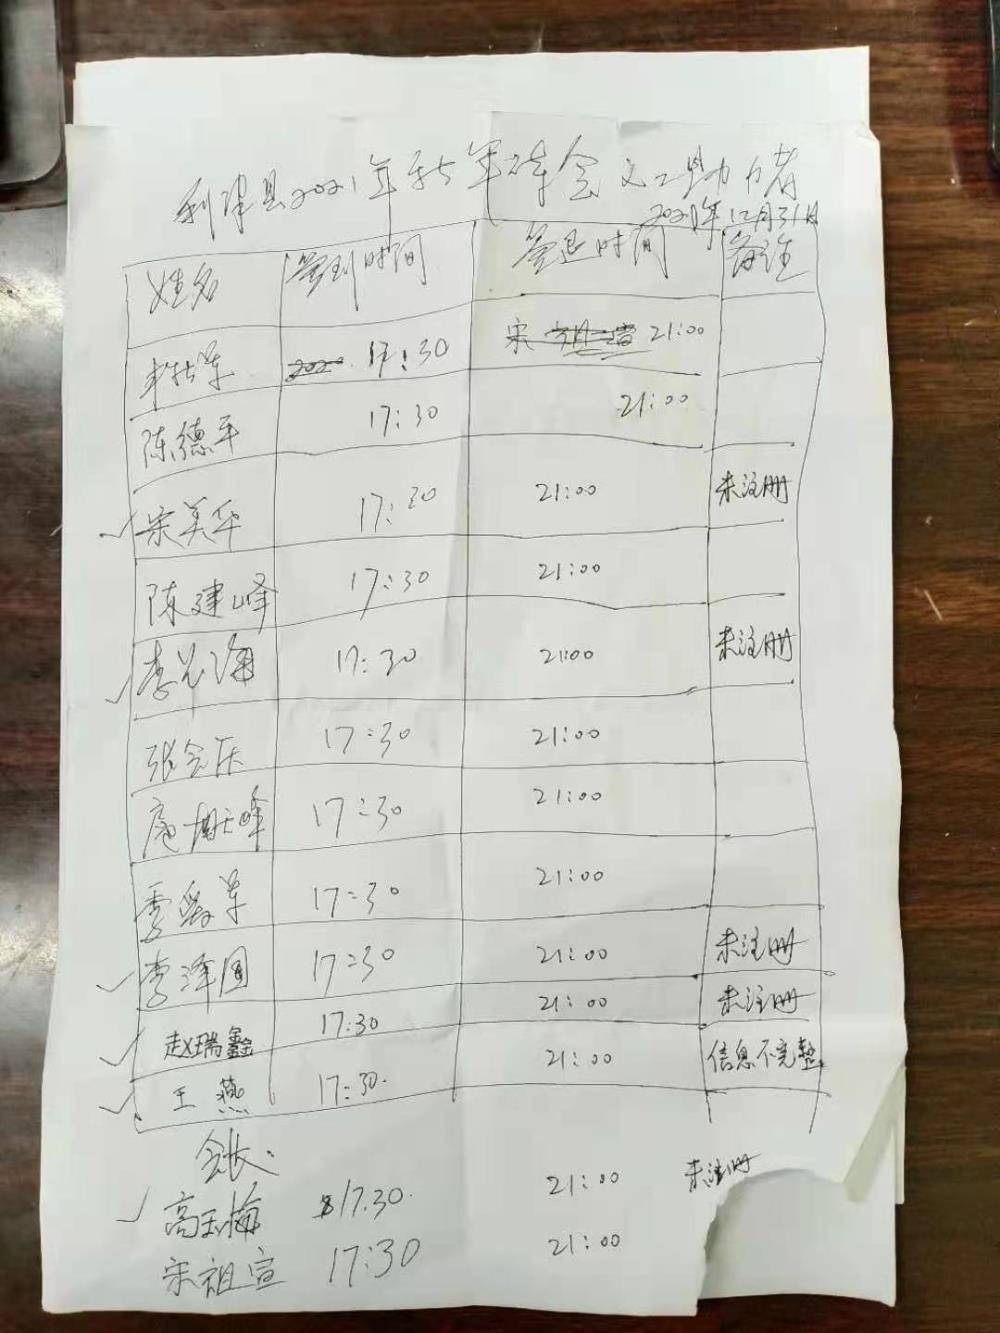 利津县2021年新年音乐会文工助力者
2021年12月31日
姓名 签到时间 签退时间 备注
17:30 宋 21:00
陈德平 17:30 21:00
宋美华 17:30 21:00 未注册
陈建峰 17:30 21:00
17:30 21:00 未注册
17:30 21:00
17:30 21:00
17:30 21:00
李泽园 17:30 21:00 未注册
赵瑞鑫 17:30 21:00 未注册
王燕 17:30 21:00 信息不完整
高玉梅 17:30 21:00 未注册
宋祖宣 17:30 21:00